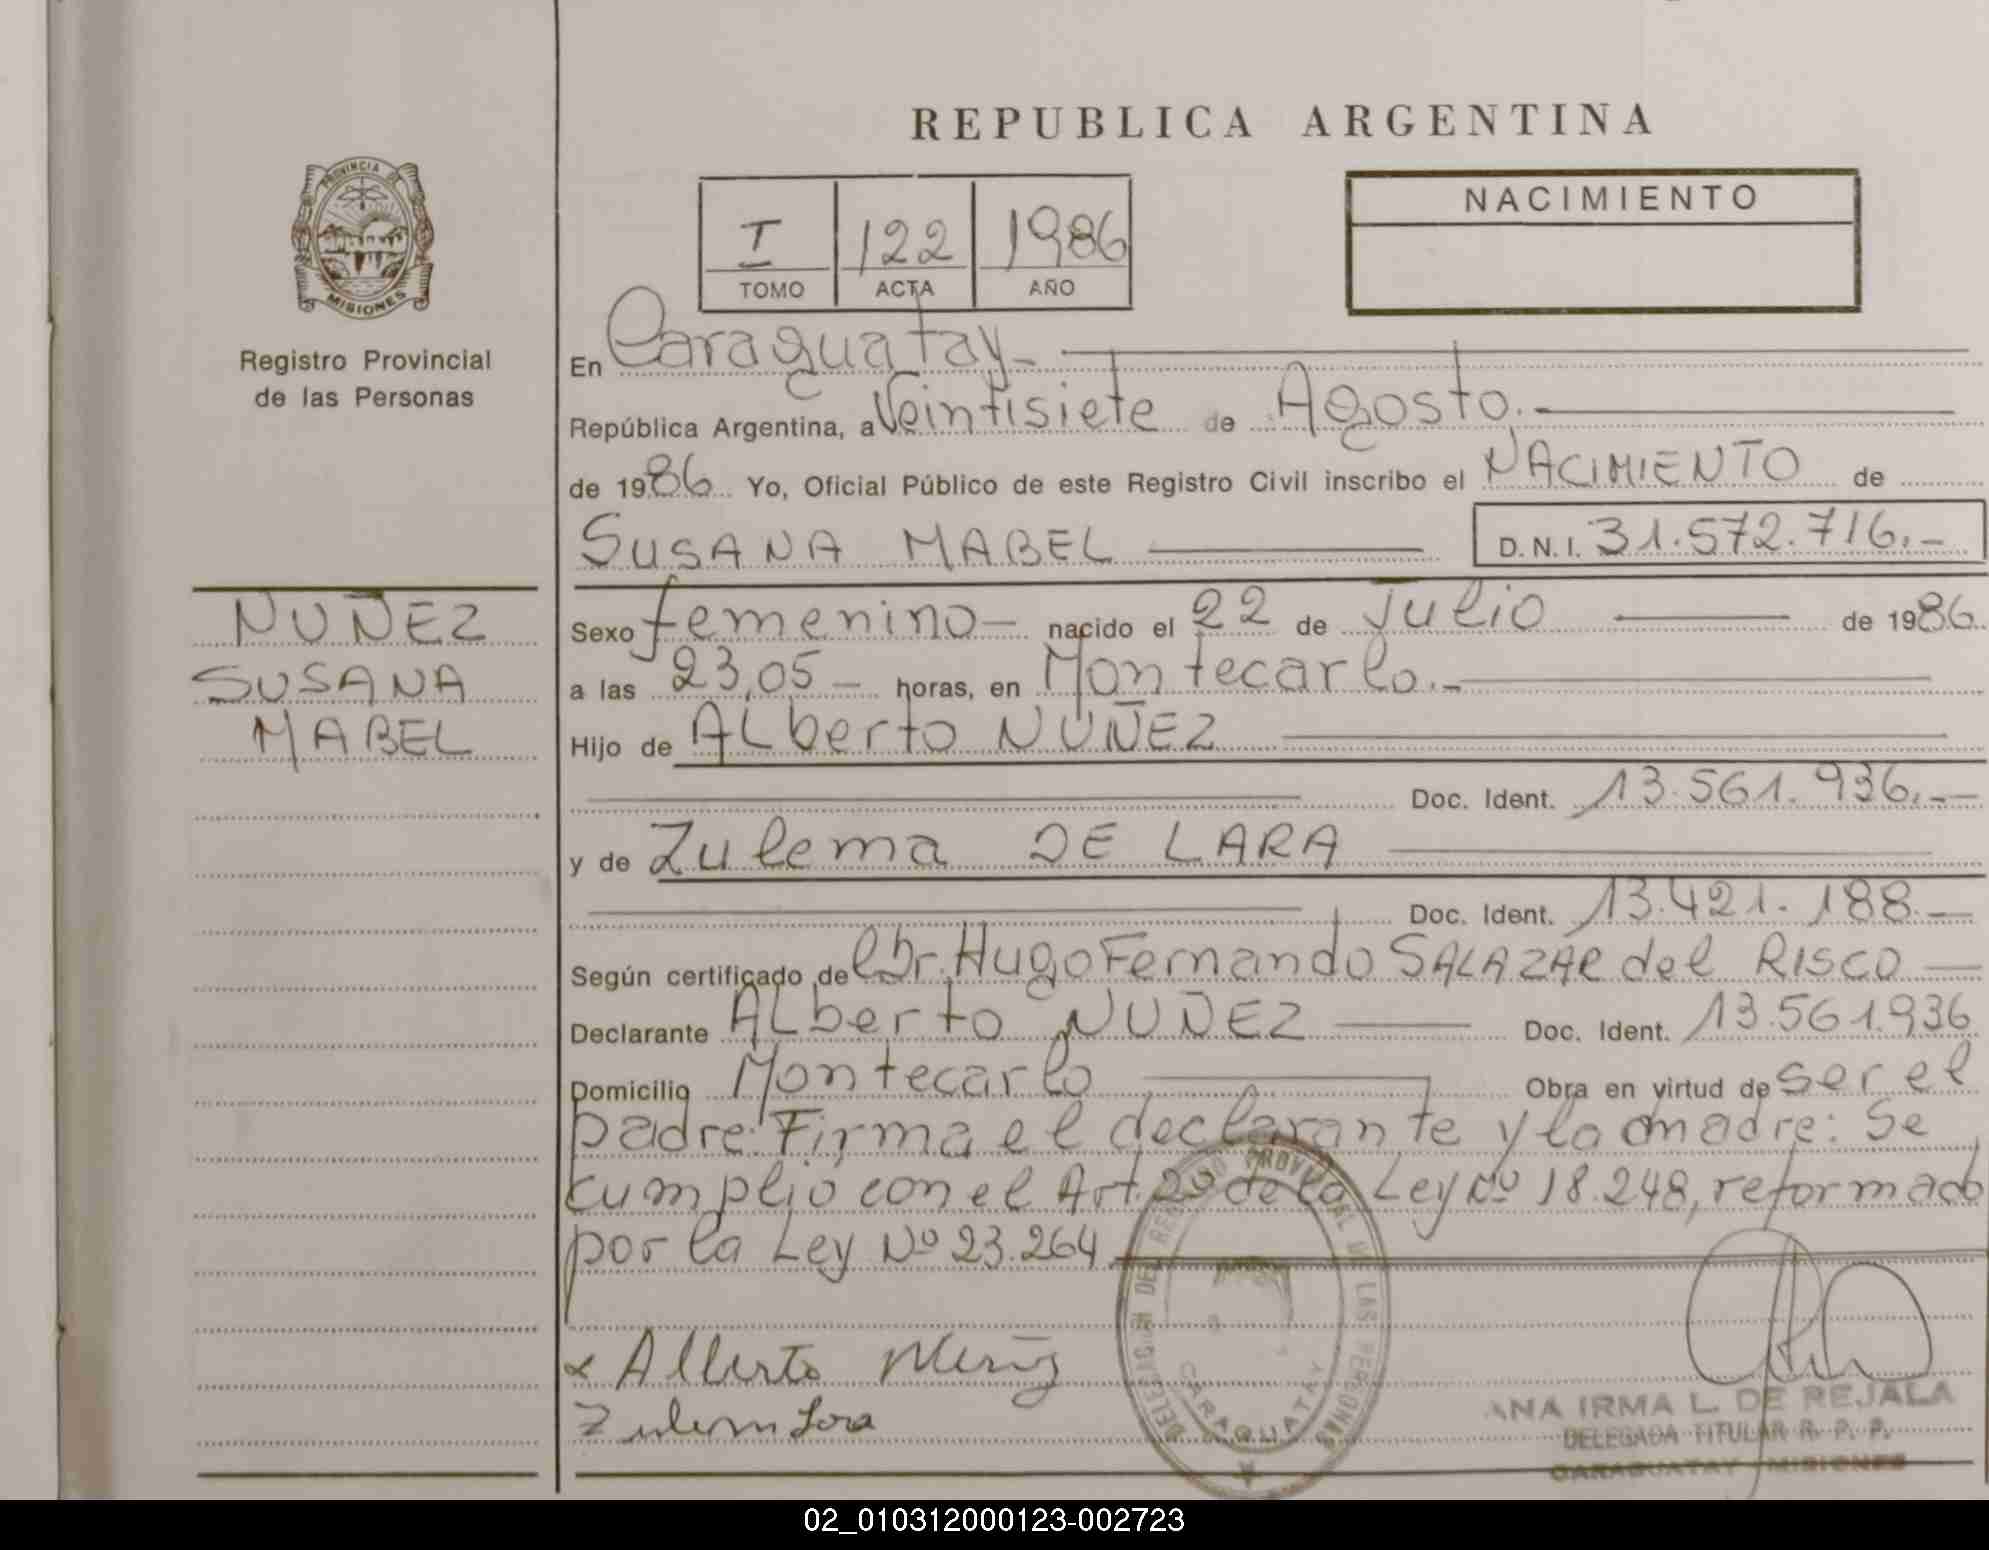 REPUBLICA ARGENTINA
PROVINCIA DE
MISIONES
Registro Provincial
de las Personas
I 122 1986
TOMO ACTA AÑO
NACIMIENTO
En Caraguatay.-
República Argentina, a Veintisiete de Agosto.-
de 1986 Yo, Oficial Público de este Registro Civil inscribo el NACIMIENTO de
SUSANA MABEL D.N.I. 31.572.716.-
NUÑEZ
SUSANA
MABEL
Sexo femenino- nacido el 22 de Julio de 1986
a las 23,05- horas, en Montecarlo.-
Hijo de Alberto NUÑEZ
Doc. Ident. 13.561.936.-
y de Zulema DE LARA
Doc. Ident. 13.421.188.-
Según certificado de Dr. Hugo Fernando SALAZAR del RISCO-
Declarante Alberto NUÑEZ Doc. Ident. 13.561.936
Domicilio Montecarlo Obra en virtud de ser el
padre: Firma el declarante y la madre: Se
cumplio con el Art. 20 de la Ley Nº 18.248, reformado
por la Ley Nº 23.264
DELEGACION DEL REGISTRO PROVINCIAL DE LAS PERSONAS
CARAGUATAY
Alberto Nuñez
Zulema Lara
ANA IRMA L. DE REJALA
DELEGADA TITULAR R. P. P.
CARAGUATAY - MISIONES
02_010312000123-002723